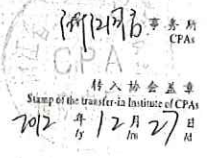 事务所
CPAs
CPA
转入协会盖章
Stamp of the transfer-in Institute of CPAs
2012 年 12 月 27 日
/y /m /d